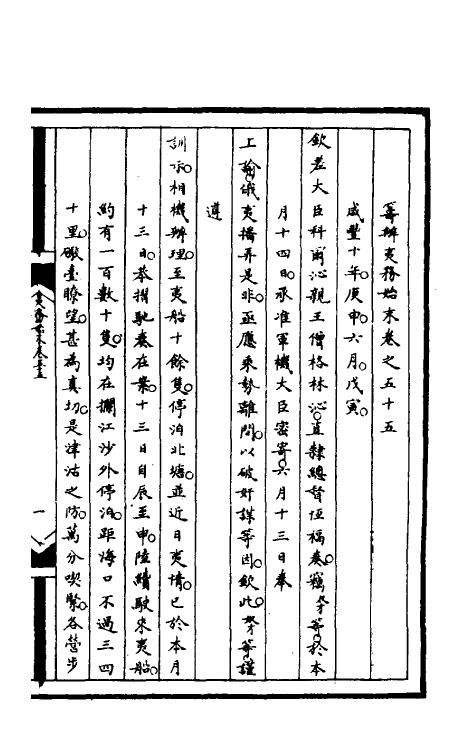 籌辦夷務始末卷之五十五
咸豐十年庚申六月戊寅
欽差大臣科爾沁親王僧格林沁直隸總督恆福奏竊奴才等於本
月十四日承准軍機大臣密寄六月十三日奉
上諭俄夷播弄是非亟應乘勢離間以破奸謀等因欽此奴才等謹
遵
訓示相機辦理至夷船十餘隻停泊北塘並近日夷情已於本月
十三日恭摺馳奏在案十三日自辰至申陸續駛來夷船
約有一百數十隻均在攔江沙外停泊距海口不過三四
十里礮臺瞭望甚為真切是津沽之防萬分喫緊各營步
夷務始末卷五十五
一